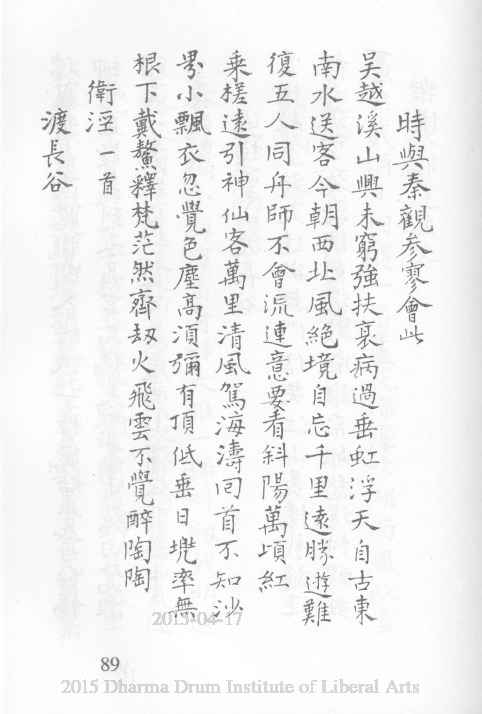 時與秦觀参寥會此
吳越溪山興未窮強扶衰病過垂虹浮天自古東
南水送客今朝西北風絕境自忘千里遠勝遊難
復五人同舟師不會流連意要看斜陽萬頃紅
乘槎遠引神仙客萬里清風駕海濤回首不知沙
界小飄衣忽覺色塵高須彌有頂低垂日兜率無
根下戴鰲釋梵茫然齊劫火飛雲不覺醉陶陶
衛涇一首
渡長谷
2015-04-17
89
2015 Dharma Drum Institute of Liberal Arts